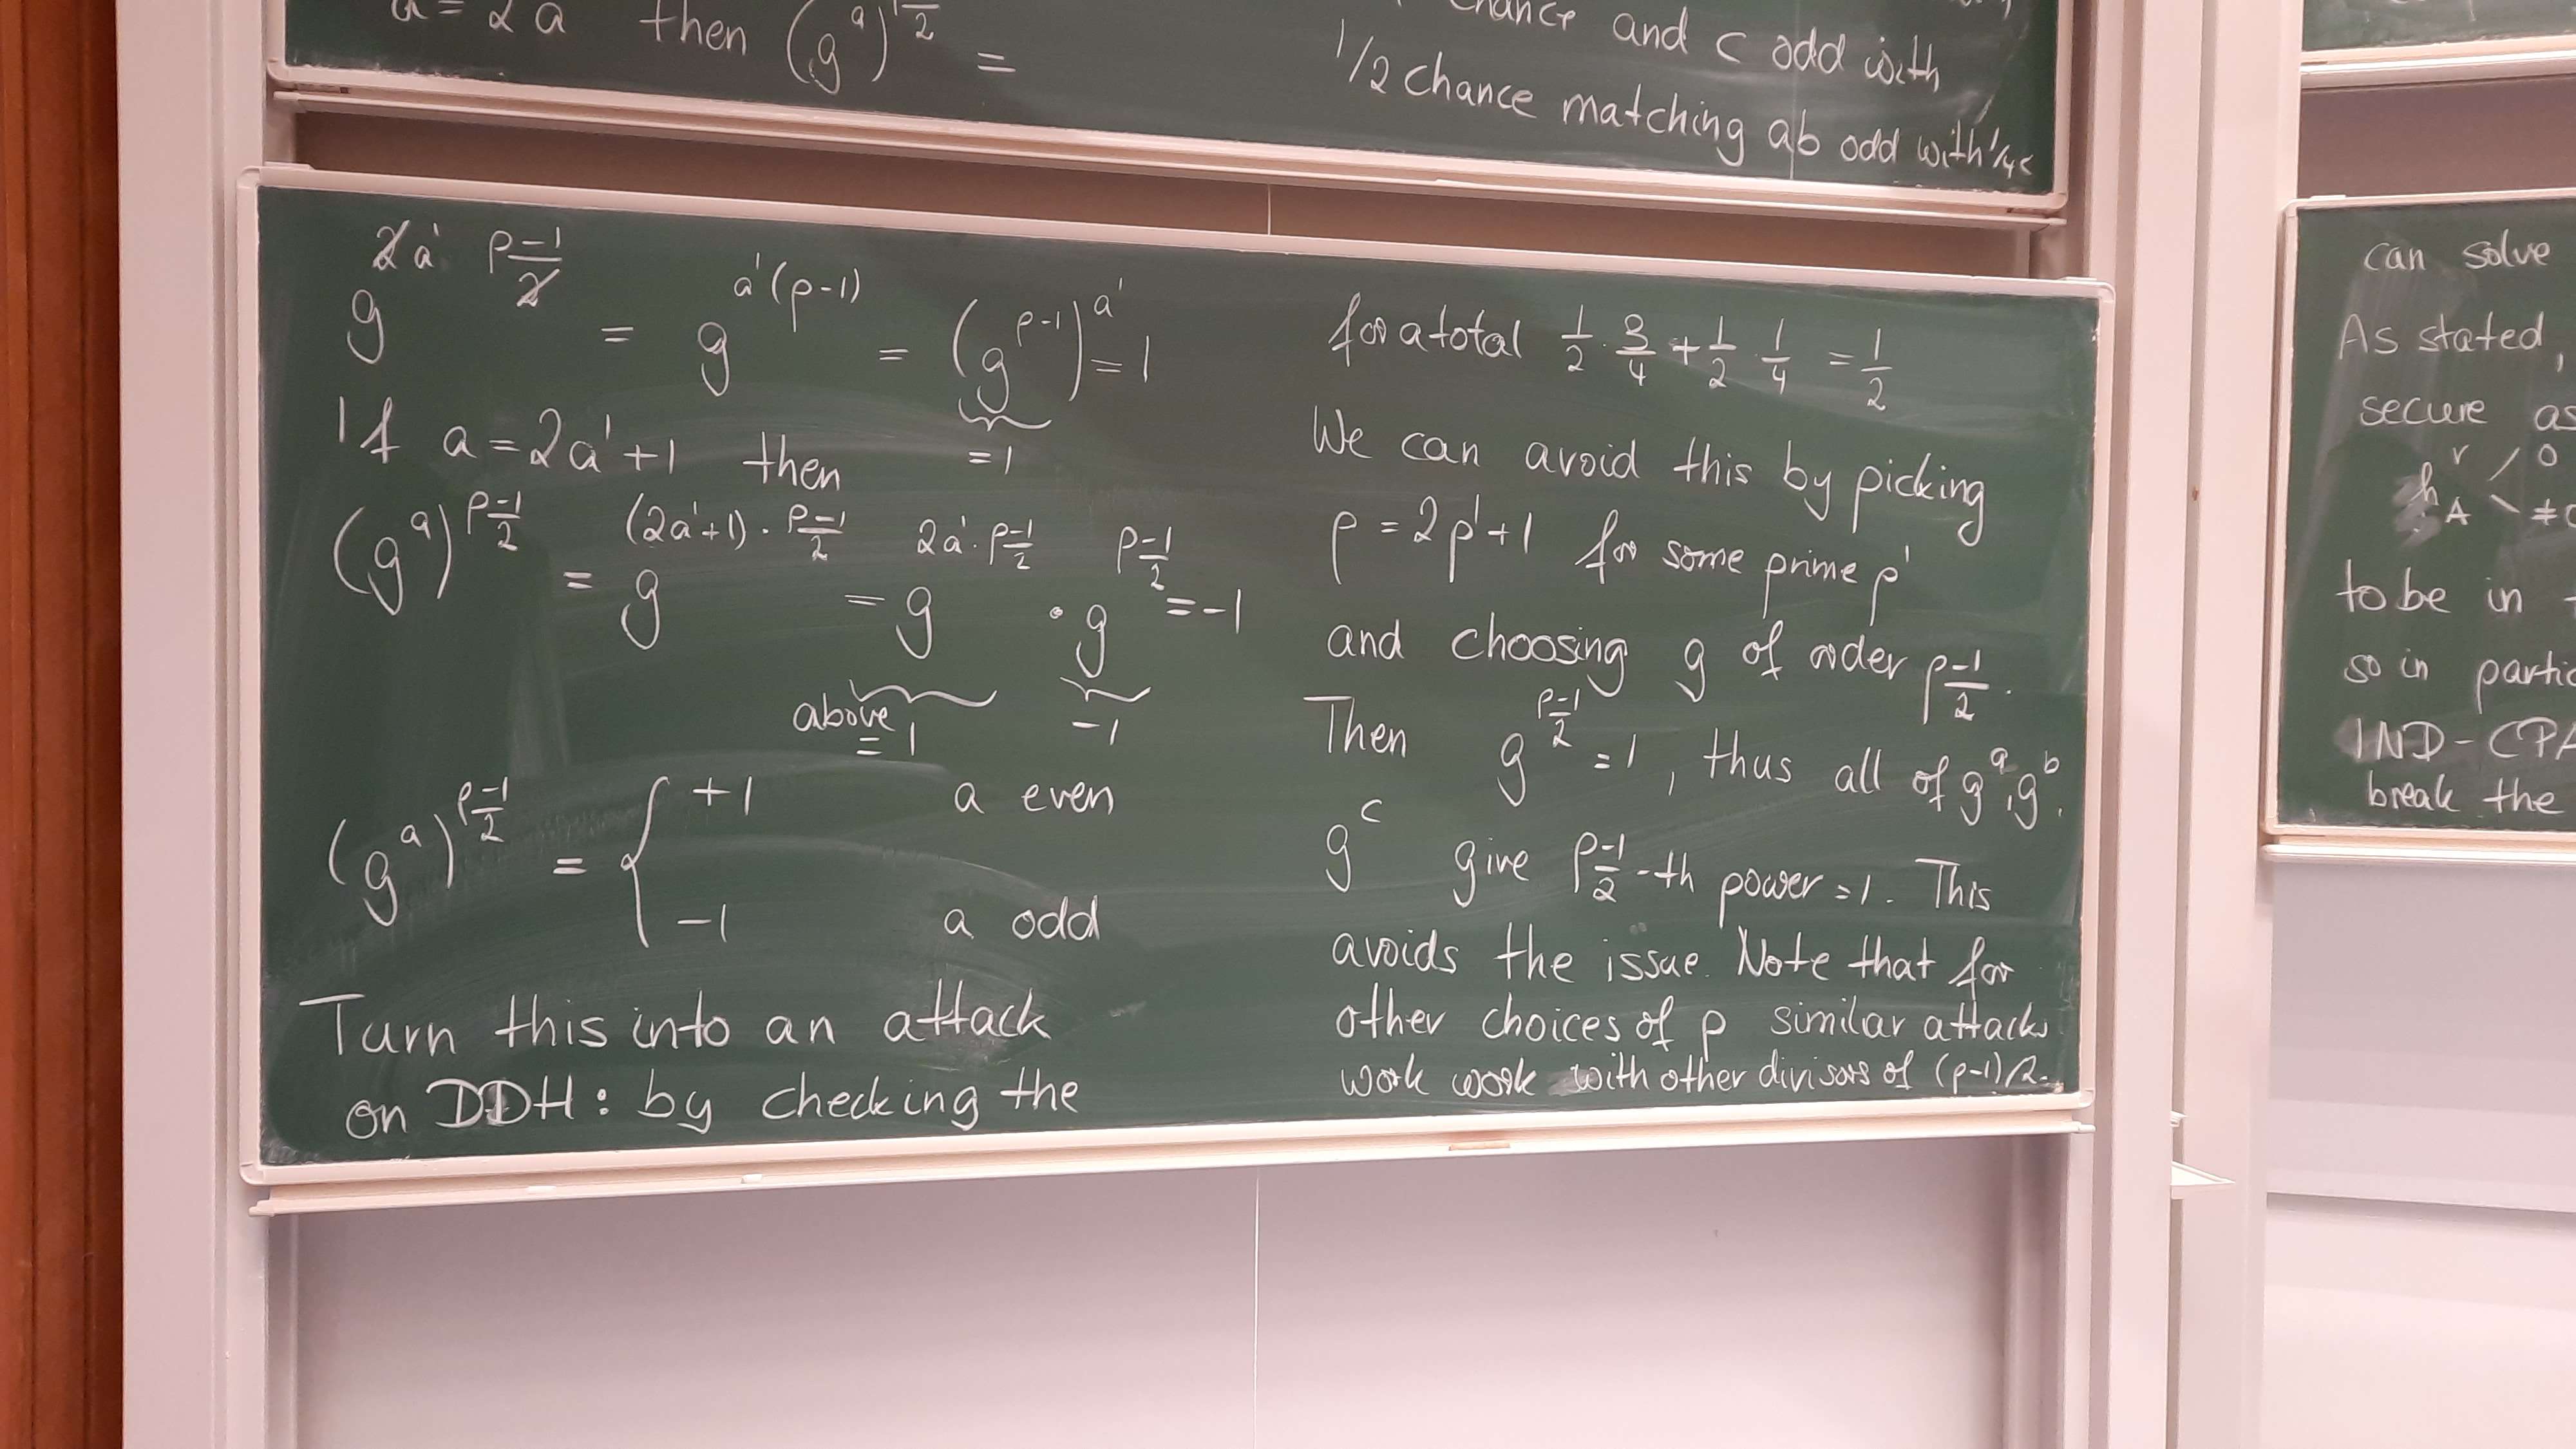 a = 2a' then (g^a)^{\frac{p-1}{2}} =
chance and c odd with
1/2 chance matching ab odd with 1/4 c
g^{2a' \cdot \frac{p-1}{2}} = g^{a'(p-1)} = (g^{p-1})^{a'} = 1
= 1
If a = 2a' + 1 then
(g^a)^{\frac{p-1}{2}} = g^{(2a'+1) \cdot \frac{p-1}{2}} = g^{2a' \cdot \frac{p-1}{2}} \cdot g^{\frac{p-1}{2}} = -1
above = 1 -1
(g^a)^{\frac{p-1}{2}} = { +1 a even
-1 a odd
Turn this into an attack
on DDH: by checking the
for a total \frac{1}{2} \cdot \frac{3}{4} + \frac{1}{2} \cdot \frac{1}{4} = \frac{1}{2}
We can avoid this by picking
p = 2p' + 1 for some prime p'
and choosing g of order \frac{p-1}{2}.
Then g^{\frac{p-1}{2}} = 1, thus all of g^a, g^b,
g^c give \frac{p-1}{2}-th power = 1. This
avoids the issue. Note that for
other choices of p similar attacks
work work with other divisors of (p-1)/2.
can solve
As stated,
secure as
h_A^r 0
≠0
to be in
so in partic
IND-CPA
break the